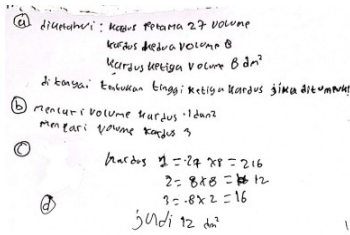 (a) diketahui : kardus Pertama 27 volume
kardus kedua volume 8
kardus ketiga volume 8 dm³
ditanyai tentukan tinggi ketiga kardus jika ditumpuk!
(b) Mencari volume kardus 1 dan 2
Mencari volume kardus 3
(c)
kardus 1 = 27 x8 = 216
2 = 8x8 = 12
3 = 8x2 = 16
(d)
jadi 12 dm²